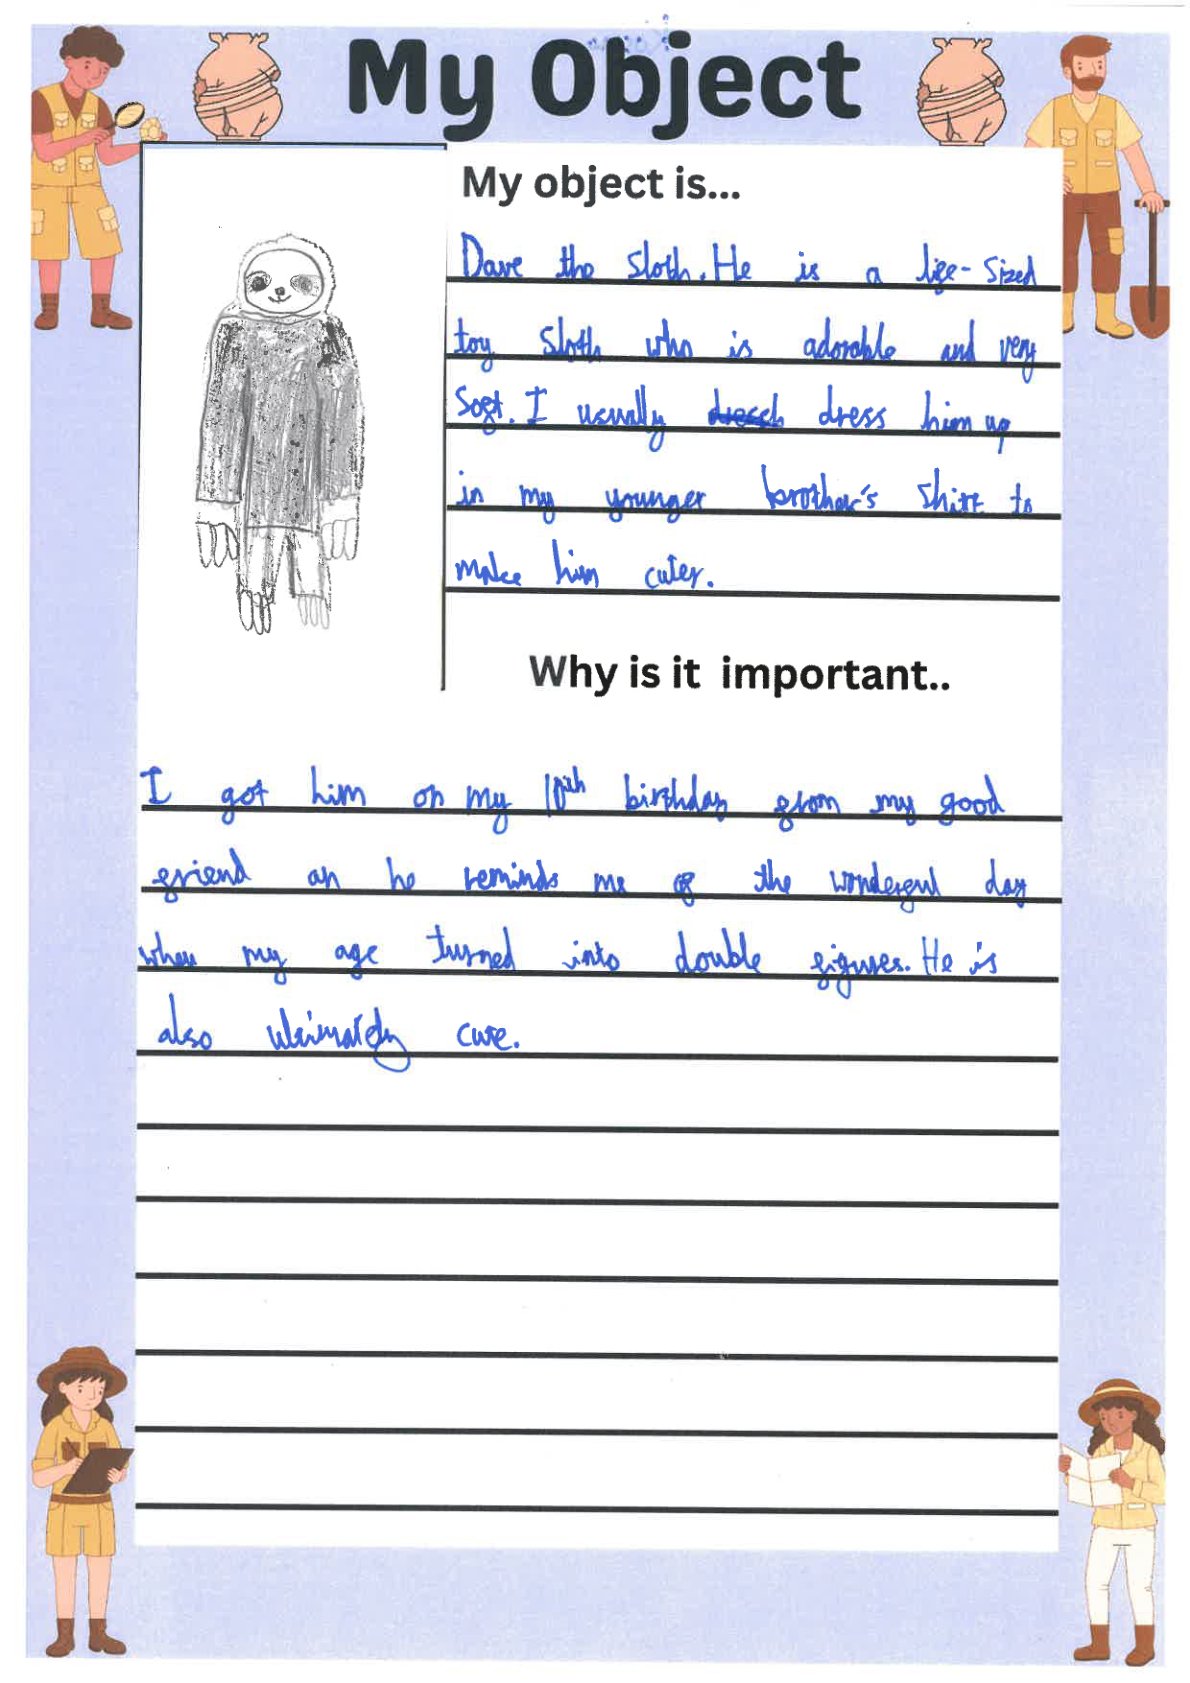 My Object
My object is...
Dave the sloth. He is a life-sized
toy sloth who is adorable and very
soft. I usually dress him up
in my younger brother's shirt to
make him cuter.
Why is it important..
I got him on my 10th birthday from my good
friend an he reminds me of the wonderful day
when my age turned into double figures. He is
also ultimately cute.